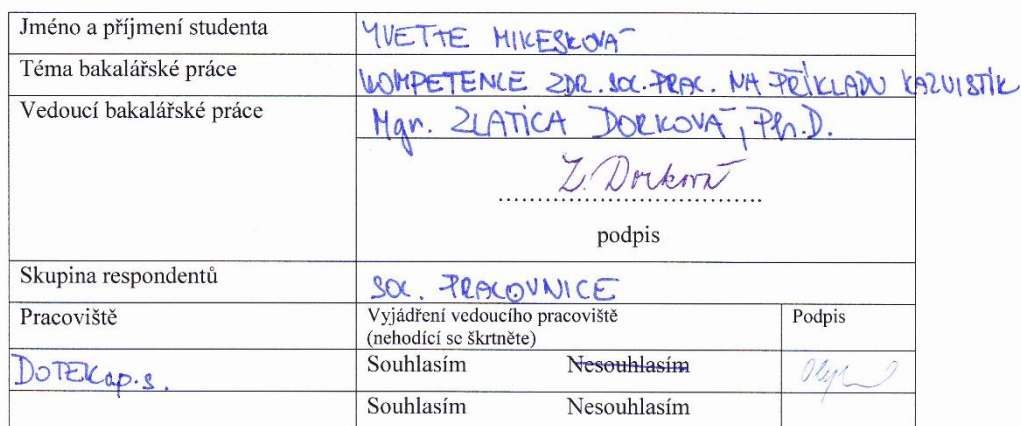 Jméno a příjmení studenta YVETTE MIKESKOVÁ
Téma bakalářské práce KOMPETENCE ZDR. SOC. PRAC. NA PŘÍKLADU KAZUISTIK
Vedoucí bakalářské práce Mgr. ZLATICA DORKOVÁ, Ph.D.
Z. Dorková
podpis
Skupina respondentů SOC. PRACOVNICE
Pracoviště Vyjádření vedoucího pracoviště Podpis
(nehodící se škrtněte)
DOTEK o.p.s. Souhlasím Nesouhlasím
Souhlasím Nesouhlasím